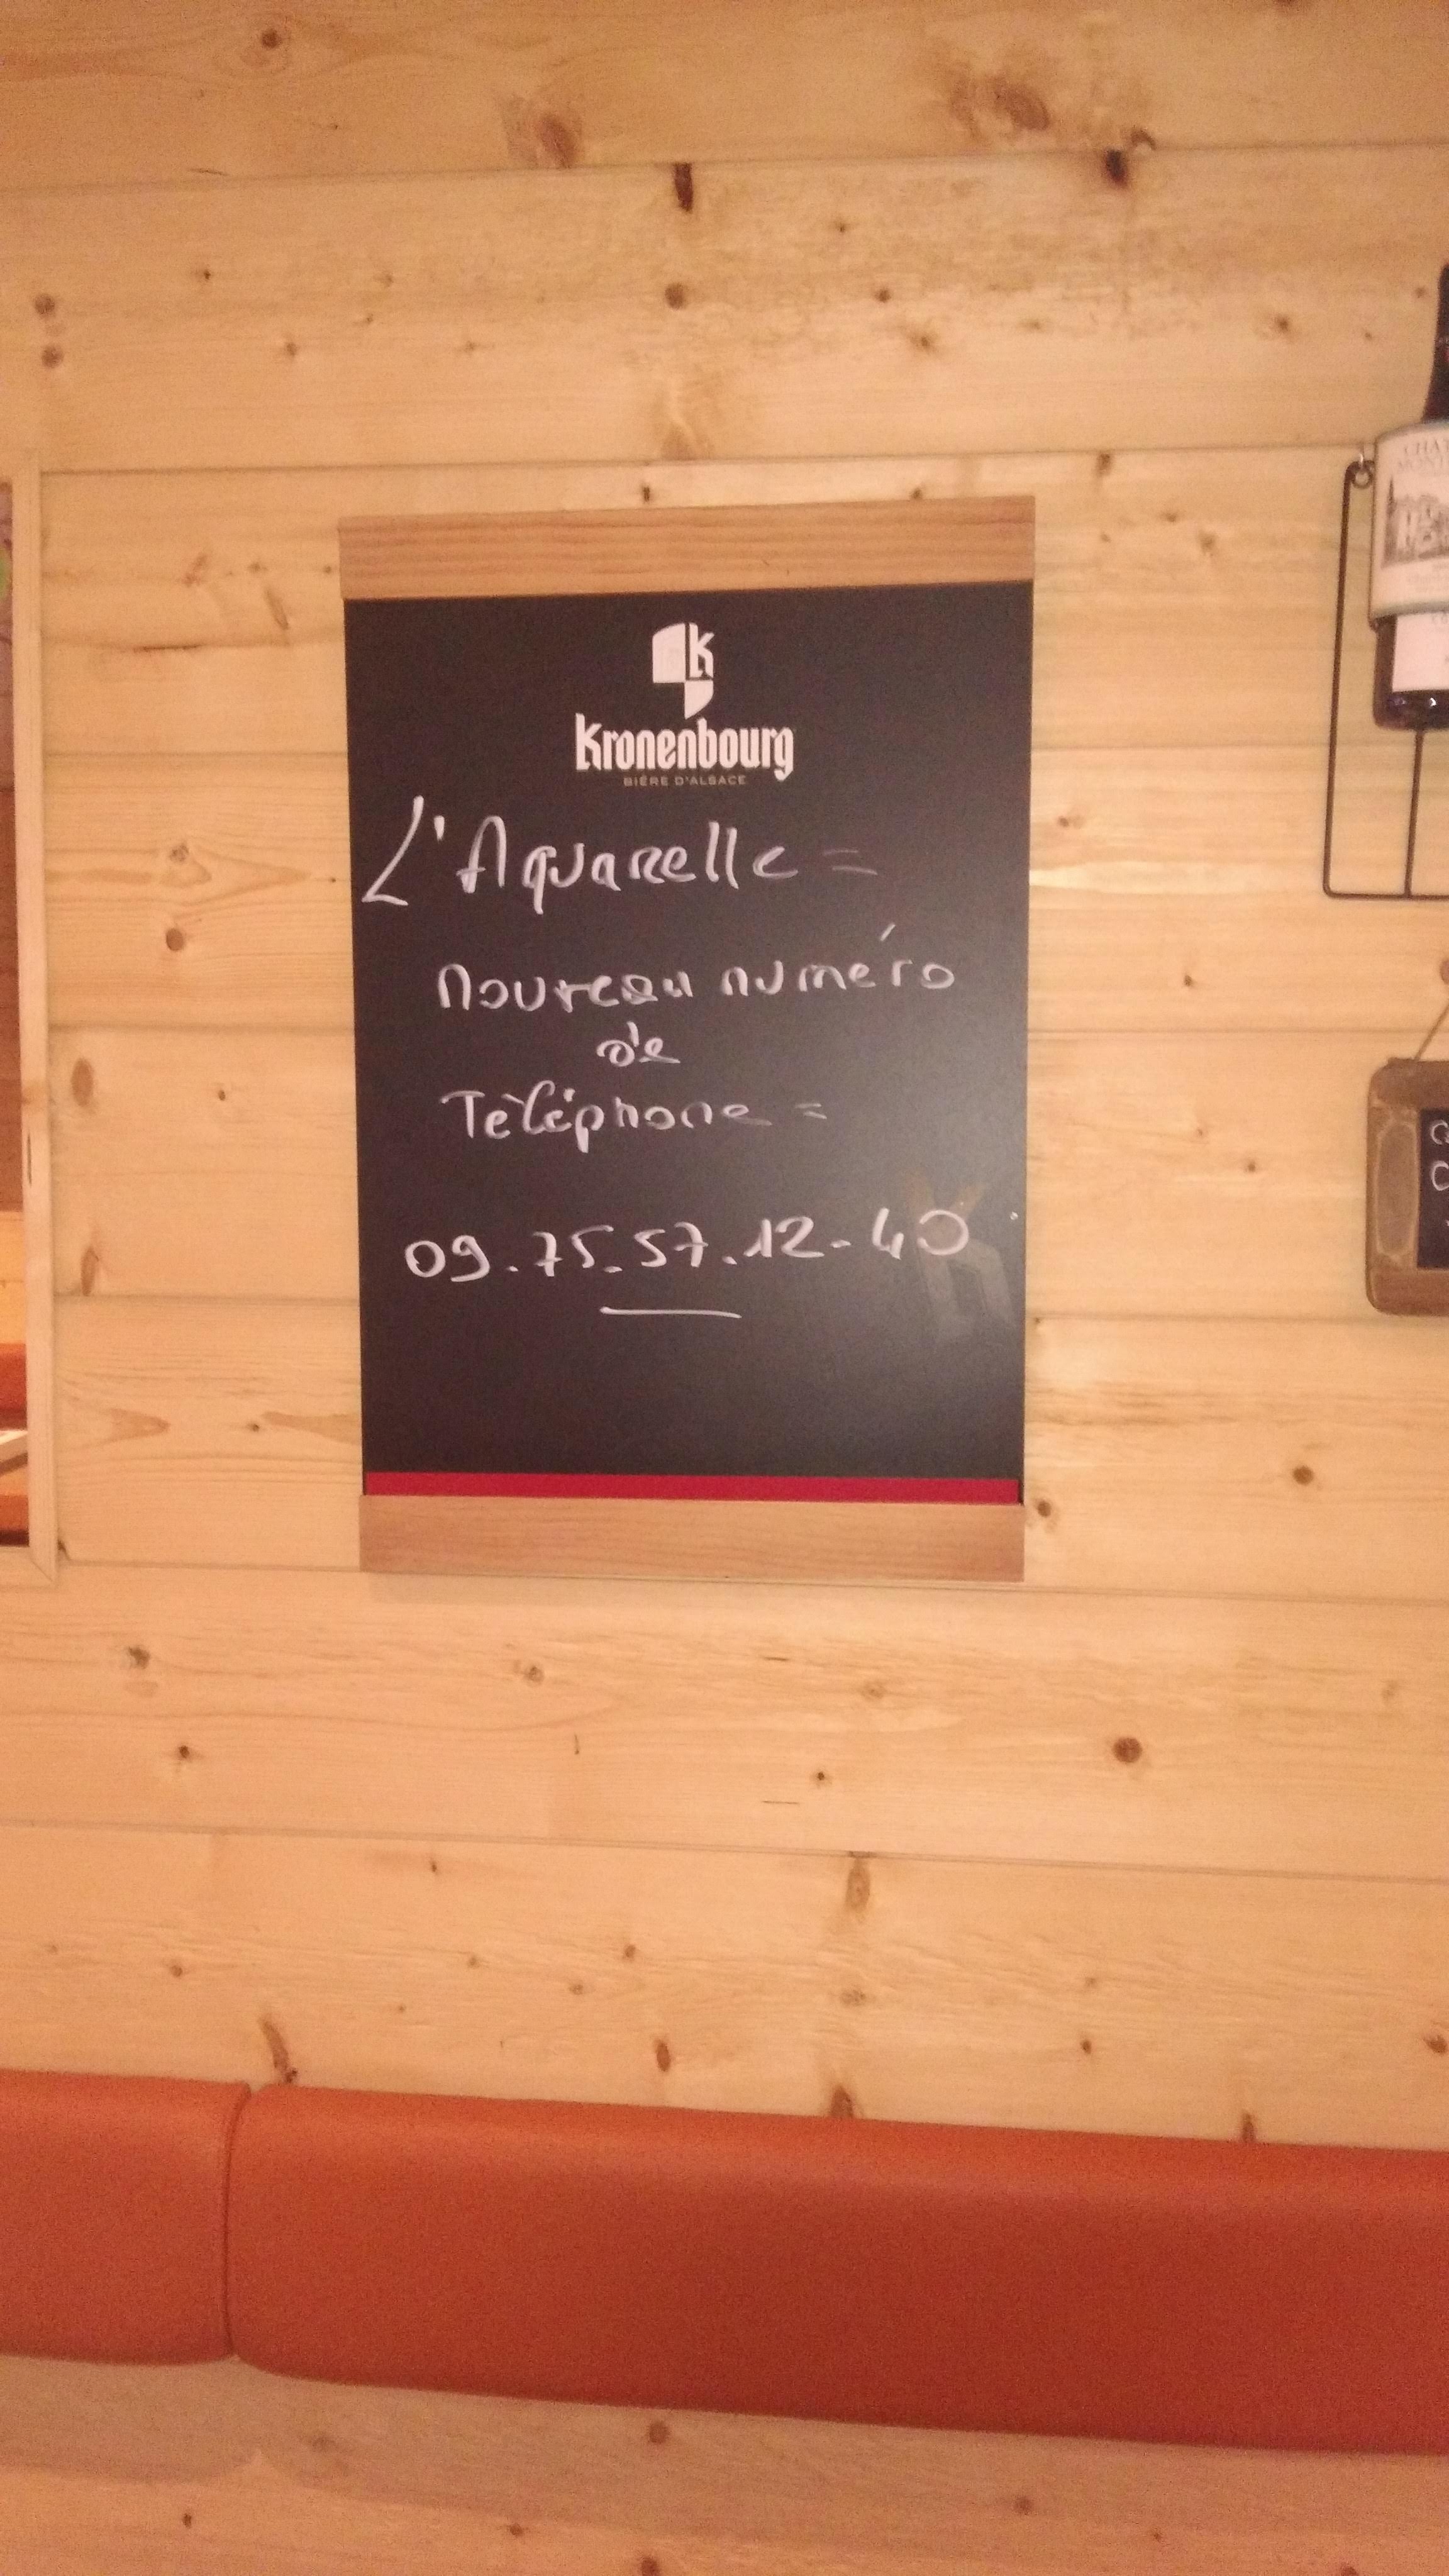 k
Kronenbourg
BIÈRE D'ALSACE
L'Aquarelle =
nouveau numéro
de
Téléphone =
09.75.57.12.40
CHAT
MONT